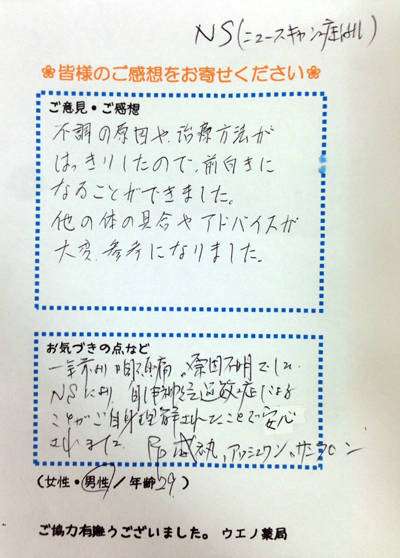 NS(ニュースキャン症例)
皆様のご感想をお寄せください
ご意見・ご感想
不調の原因や、治療方法が
はっきりしたので、前向きに
なることができました。
他の体の具合やアドバイスが
大変、参考になりました。
お気づきの点など
一年前より頭痛。原因不明でした
NSにより、自律神経過敏症による
ことがご自身理解されたことで安心
されました
(女性・男性/年齢29)
ご協力有難うございました。 ウエノ薬局